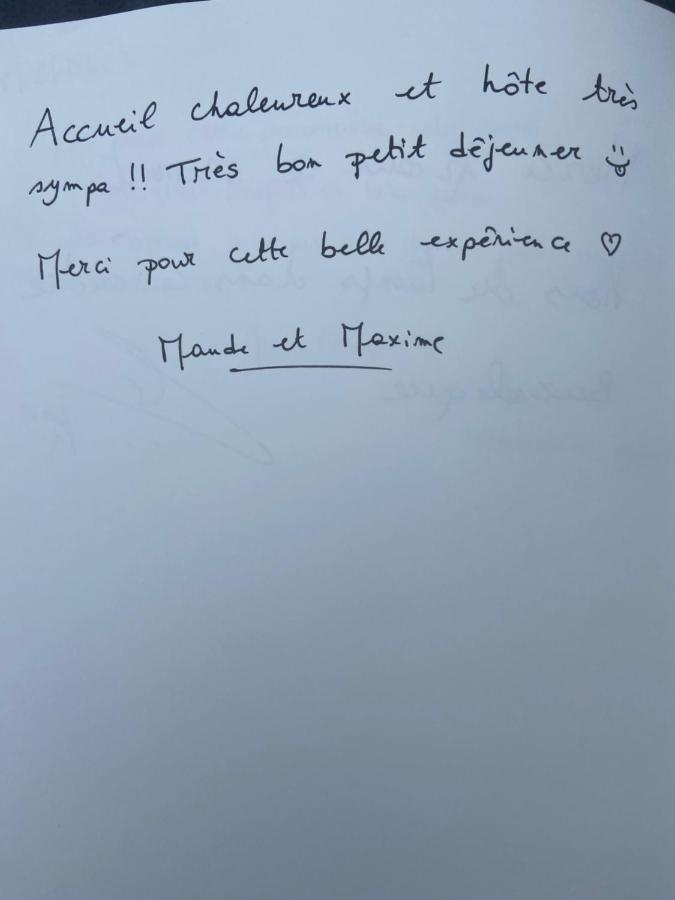 Accueil chaleureux et hôte très
sympa !! Très bon petit déjeuner
Merci pour cette belle expérience ♡
Maude et Maxime